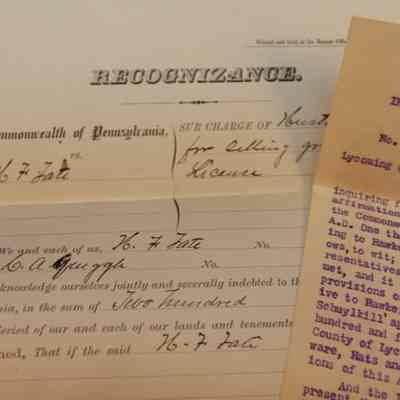 Printed and Sold at the Banner Office
RECOGNIZANCE.
Commonwealth of Pennsylvania,
vs.
H F Fate
SUR CHARGE OF
for selling
License
We and each of us, H. F Fate No
C. A. No.
knowledge ourselves jointly and severally indebted to the
nia, in the sum of Two hundred
levied of our and each of our lands and tenements
ned, That if the said H- F Fate
No.
Lycoming
inquiring
affirmation
the Commonw
A.D. One tho
ing to Hawke
ows, to wit;
resentatives
met, and it
provisions o
ive to Hawke
Schuylkill' ap
hundred and f
County of Lyc
ware, Hats and
ions of this A
And the
present